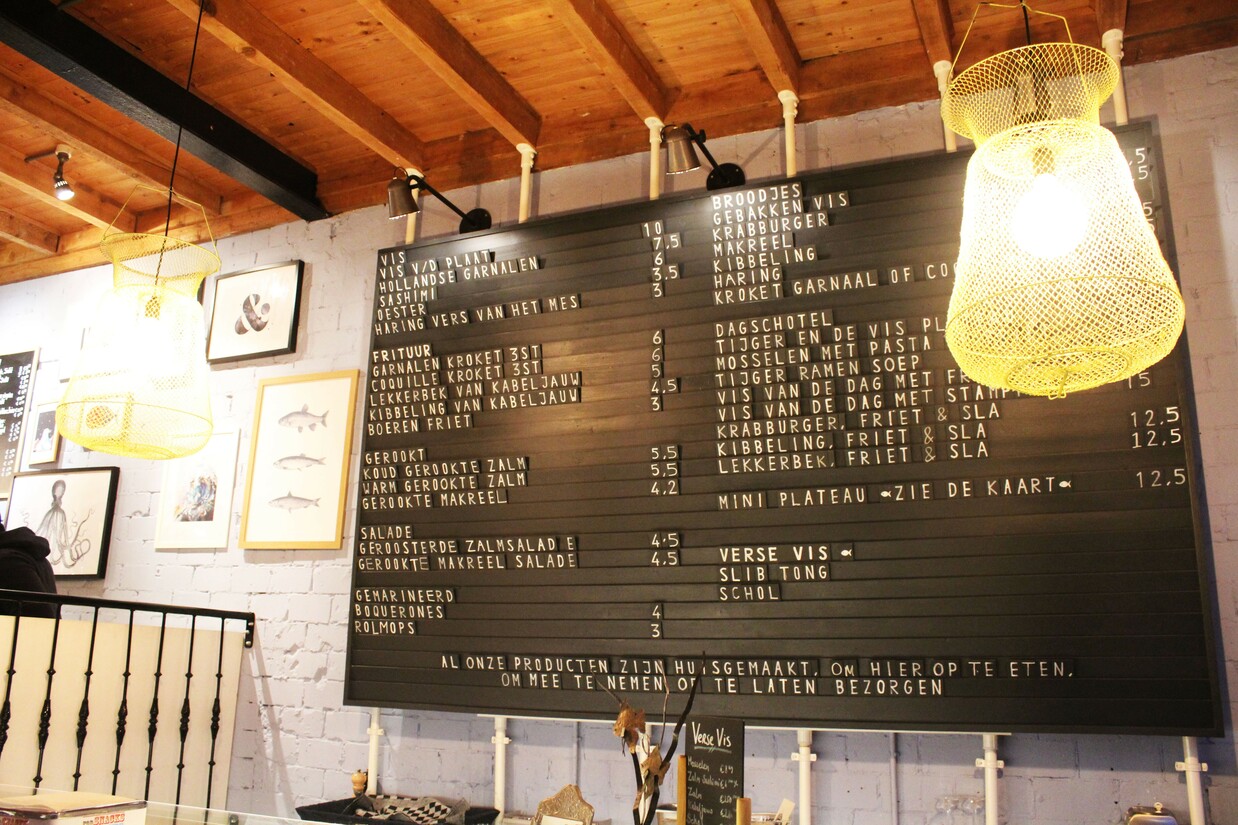 VIS
VIS V/D PLANT 10
HOLLANDSE GARNALEN 7,5
SASHIMI 6
OESTER 3.5
HARING VERS VAN HET MES 3
FRITUUR
GARNALEN KROKET 3ST 6
COQUILLE KROKET 3ST 6
LEKKERBEK VAN KABELJAUW 5
KIBBELING VAN KABELJAUW 4,5
BOEREN FRIET 3
GEROOKT
KOUD GEROOKTE ZALM 5,5
WARM GEROOKTE ZALM 5,5
GEROOKTE MAKREEL 4,2
SALADE
GEROOSTERDE ZALMSALADE 4,5
GEROOKTE MAKREEL SALADE 4,5
GEMARINEERD
BOQUERONES 4
ROLMOPS 3
BROODJES
GEBAKKEN VIS
KRABBURGER
MAKREEL
KIBBELING
HARING
KROKET GARNAAL OF
DAGSCHOTEL
TIJGER EN DE VIS
MOSSELEN MET PASTA
TIJGER RAMEN SOEP
VIS VAN DE DAG MET
VIS VAN DE DAG MET
KRABBURGER, FRIET & SLA
KIBBELING, FRIET & SLA 12,5
LEKKERBEK, FRIET & SLA 12,5
MINI PLATEAU ZIE DE KAART 12,5
VERSE VIS
SLIB TONG
SCHOL
AL ONZE PRODUCTEN ZIJN HUISGEMAAKT, OM HIER OP TE ETEN,
OM MEE TE NEMEN OF TE LATEN BEZORGEN
&
Verse Vis
Zalm